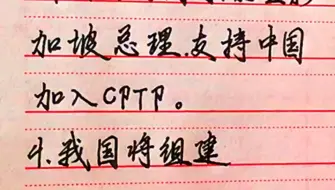 加坡总理支持中国
加入CPTP。
4.我国将组建